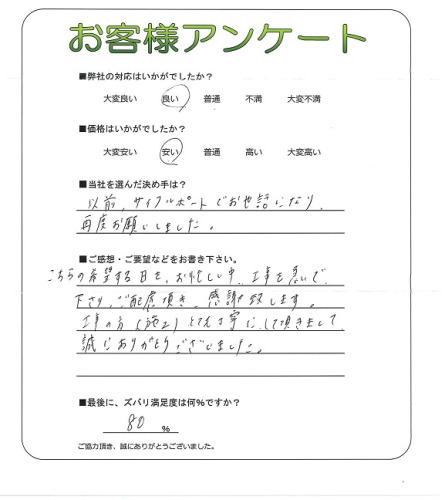 お客様アンケート
■弊社の対応はいかがでしたか？
大変良い 良い 普通 不満 大変不満
■価格はいかがでしたか？
大変安い 安い 普通 高い 大変高い
■当社を選んだ決め手は？
以前、サイクルポートでお世話になり、
再度お願いしました。
■ご感想・ご要望などをお書き下さい。
こちらの希望する日を、お忙しい中、工事を急いで
下さり、ご配慮頂き、感謝致します。
工事の方（施工）とても丁寧にして頂きまして
誠にありがとうございました。
■最後に、ズバリ満足度は何%ですか？
80 %
ご協力頂き、誠にありがとうございました。